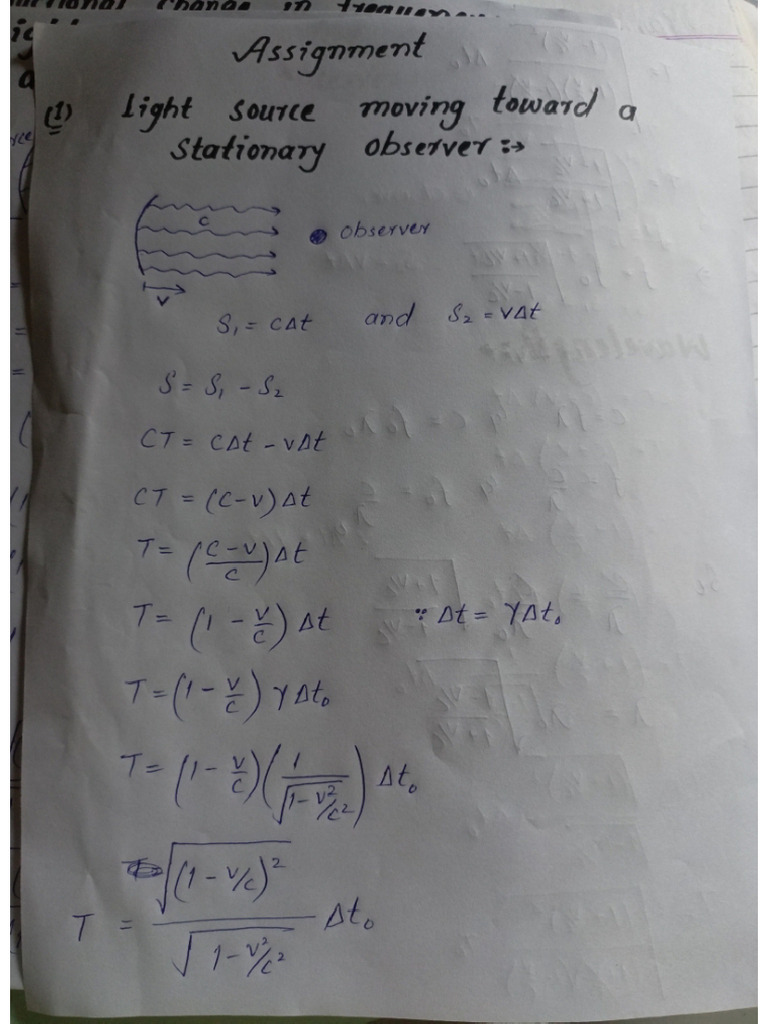 Change in frequen
Assignment
(1) Light source moving toward a
stationary observer :→
C
observer
V
S₁ = CΔt and S₂ = VΔt
S = S₁ - S₂
CT = CΔt - VΔt
CT = (C-V)Δt
T = (C-V/C)Δt
T = (1 - V/C) Δt ∵ Δt = γΔt₀
T = (1 - V/C) γΔt₀
T = (1 - V/C)(1/√1-V²/C²) Δt₀
√(1 - V/C)²
T = ――― Δt₀
√1-V²/C²